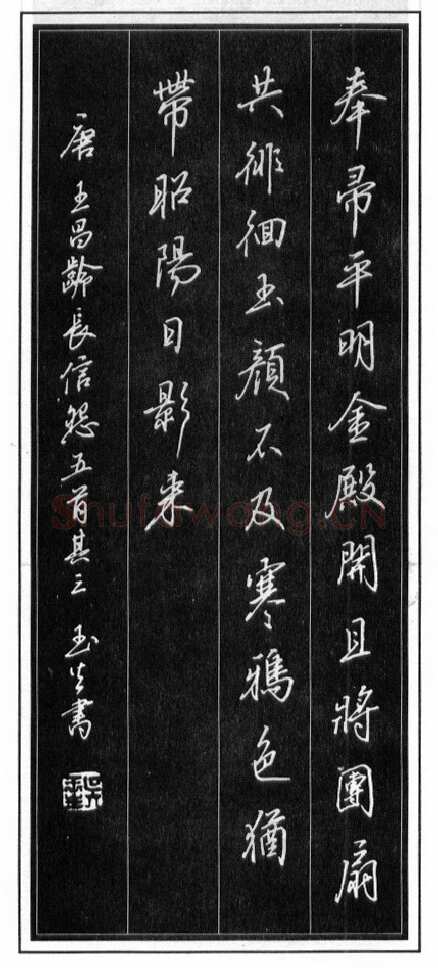 奉帚平明金殿開且將團扇
共徘徊玉顏不及寒鴉色猶
帶昭陽日影来
唐王昌齡長信怨五首其三 玉生書
Shufawang.CN